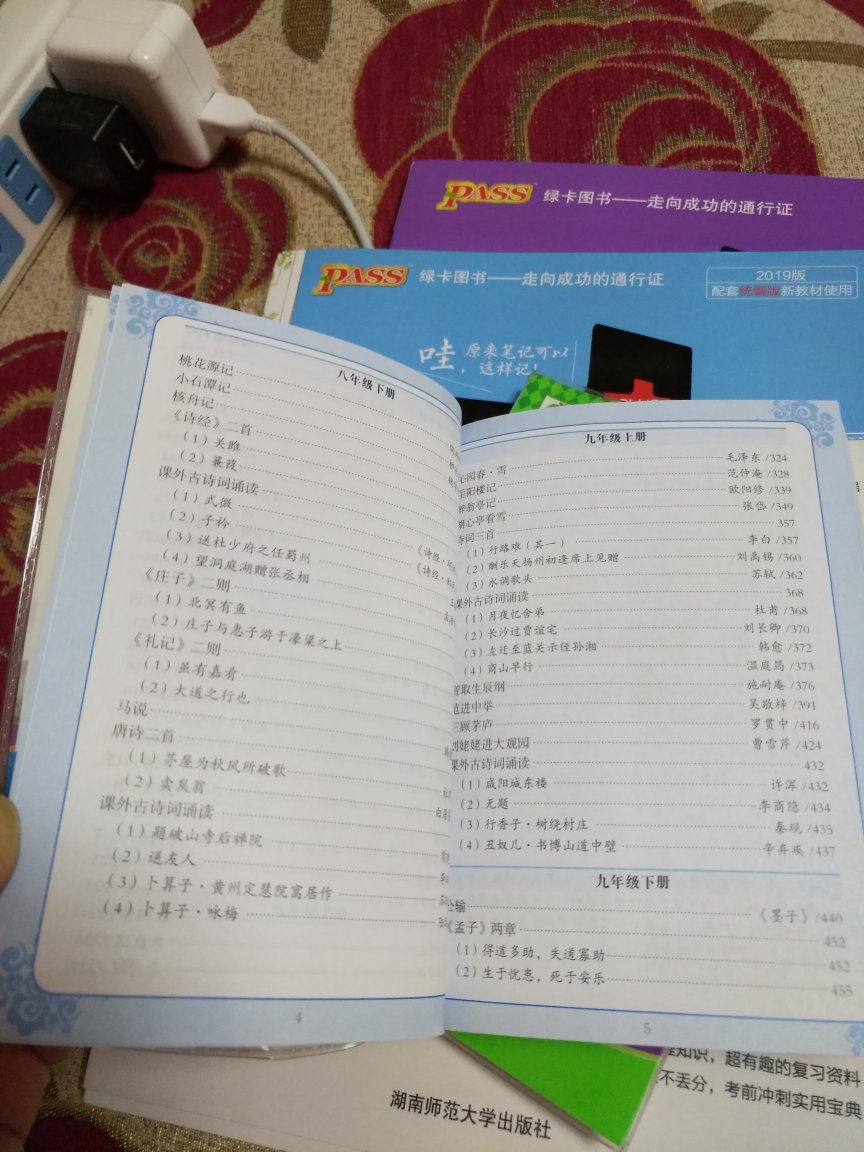 PASS 绿卡图书——走向成功的通行证
PASS 绿卡图书——走向成功的通行证
2019版
配套统编版新教材使用
哇，原来笔记可以
这样记！
八年级下册
桃花源记
小石潭记
核舟记
《诗经》二首
（1）关雎
（2）蒹葭
课外古诗词诵读
（1）式微
（2）子衿
（3）送杜少府之任蜀州
（4）望洞庭湖赠张丞相
《庄子》二则
（1）北冥有鱼
（2）庄子与惠子游于濠梁之上
《礼记》二则
（1）虽有嘉肴
（2）大道之行也
马说
唐诗二首
（1）茅屋为秋风所破歌
（2）卖炭翁
课外古诗词诵读
（1）题破山寺后禅院
（2）送友人
（3）卜算子·黄州定慧院寓居作
（4）卜算子·咏梅
4
九年级上册
心园春·雪 毛泽东 /324
岳阳楼记 范仲淹 /328
醉翁亭记 欧阳修 /339
湖心亭看雪 张岱 /349
诗词三首 357
（1）行路难（其一） 李白 /357
（2）酬乐天扬州初逢席上见赠 刘禹锡 /360
（3）水调歌头 苏轼 /362
课外古诗词诵读 368
（1）月夜忆舍弟 杜甫 /368
（2）长沙过贾谊宅 刘长卿 /370
（3）左迁至蓝关示侄孙湘 韩愈 /372
（4）商山早行 温庭筠 /373
智取生辰纲 施耐庵 /376
范进中举 吴敬梓 /391
三顾茅庐 罗贯中 /416
刘姥姥进大观园 曹雪芹 /424
课外古诗词诵读 432
（1）咸阳城东楼 许浑 /432
（2）无题 李商隐 /434
（3）行香子·树绕村庄 秦观 /435
（4）丑奴儿·书博山道中壁 辛弃疾 /437
九年级下册
公输 《墨子》/440
《孟子》两章 452
（1）得道多助，失道寡助 452
（2）生于忧患，死于安乐 455
5
知识，超有趣的复习资料
不丢分，考前冲刺实用宝典
湖南师范大学出版社